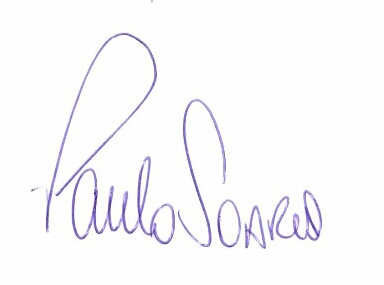 Paulo Soares